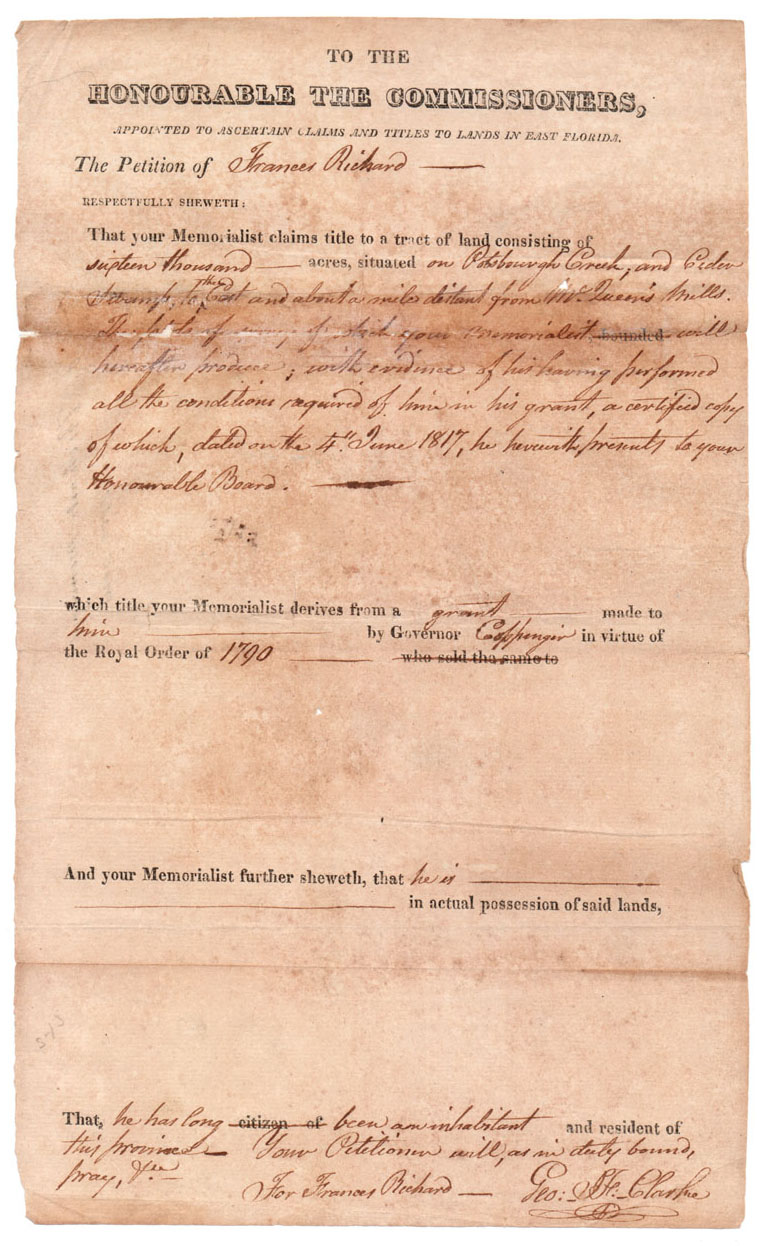 TO THE
HONOURABLE THE COMMISSIONERS,
APPOINTED TO ASCERTAIN CLAIMS AND TITLES TO LANDS IN EAST FLORIDA.
The Petition of Frances Richard
RESPECTFULLY SHEWETH:
That your Memorialist claims title to a tract of land consisting of
sixteen thousand acres, situated on Potsbourgh Creek, and Ceder
Swamp, to the East and about a mile distant from McQueen's Mills.
The plats of survey of which your memorialist bounded will
hereafter produce; with evidence of his having performed
all the conditions required of him in his grant, a certified copy
of which, dated on the 4th. June 1817, he herewith presents to your
Honourable Board.
which title your Memorialist derives from a grant made to
him by Governor Coppenger in virtue of
the Royal Order of 1790 who sold the same to
And your Memorialist further sheweth, that he is
in actual possession of said lands,
That, he has long citizen of been an inhabitant and resident of
this province Your Petitioner will, as in duty bound,
pray, &ce
For Frances Richard Geo: J. F. Clarke